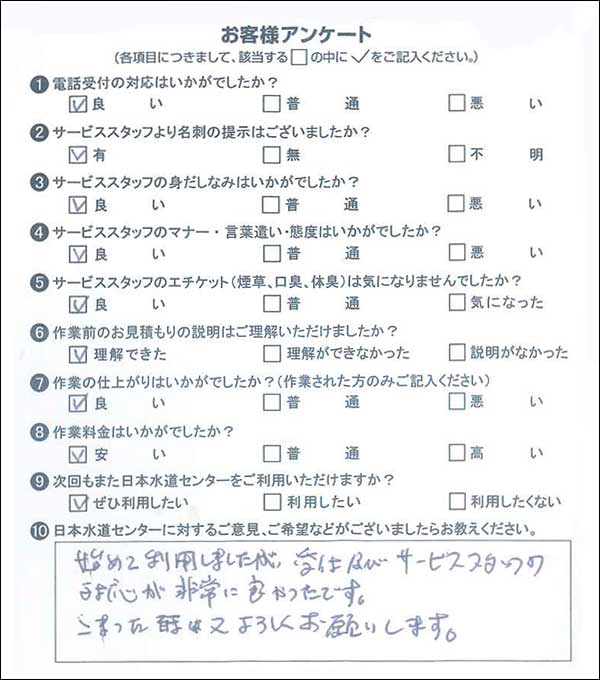 お客様アンケート
(各項目につきまして、該当する□の中に✓をご記入ください。)
❶電話受付の対応はいかがでしたか?
☑良い □普通 □悪い
❷サービススタッフより名刺の提示はございましたか?
☑有 □無 □不明
❸サービススタッフの身だしなみはいかがでしたか?
☑良い □普通 □悪い
❹サービススタッフのマナー・言葉遣い・態度はいかがでしたか?
☑良い □普通 □悪い
❺サービススタッフのエチケット(煙草、口臭、体臭)は気になりませんでしたか?
☑良い □普通 □気になった
❻作業前のお見積もりの説明はご理解いただけましたか?
☑理解できた □理解ができなかった □説明がなかった
❼作業の仕上がりはいかがでしたか?(作業された方のみご記入ください)
☑良い □普通 □悪い
❽作業料金はいかがでしたか?
☑安い □普通 □高い
❾次回もまた日本水道センターをご利用いただけますか?
☑ぜひ利用したい □利用したい □利用したくない
❿日本水道センターに対するご意見、ご希望などがございましたらお教えください。
始めて利用しましたが、受付及びサービススタッフの
対応が非常に良かったです。
こまった時は又よろしくお願いします。